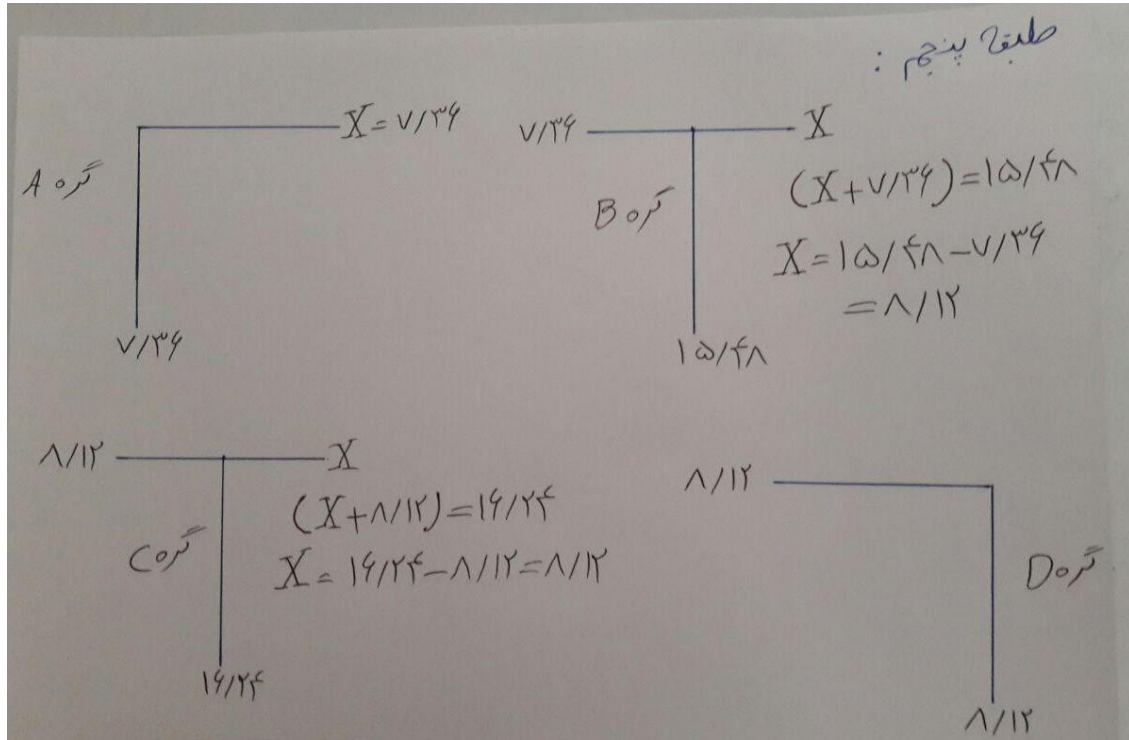 طبقه پنجم :
X = ۷/۳۶
گره A
۷/۳۶
۷/۳۶
X
گره B
(X+۷/۳۶)=۱۵/۴۸
X=۱۵/۴۸-۷/۳۶
=۸/۱۲
۱۵/۴۸
۸/۱۲
X
گره C
(X+۸/۱۲)=۱۶/۲۴
X=۱۶/۲۴-۸/۱۲=۸/۱۲
۱۶/۲۴
۸/۱۲
گره D
۸/۱۲